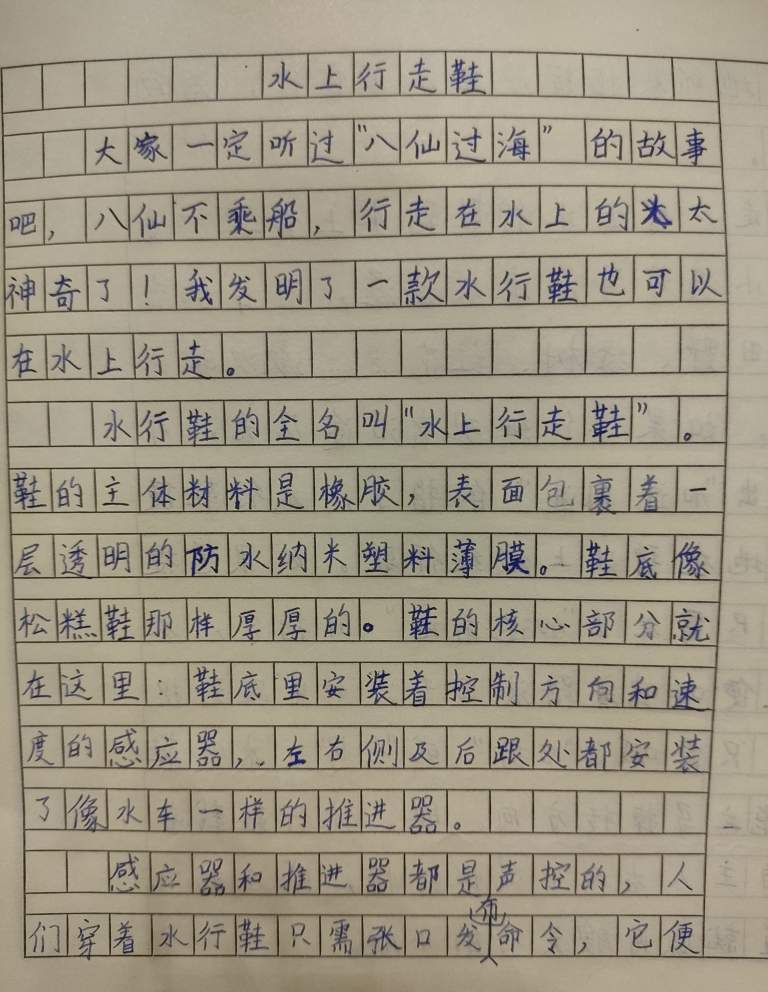 水上行走鞋
大家一定听过"八仙过海"的故事
吧，八仙不乘船，行走在水上的太
神奇了！我发明了一款水行鞋也可以
在水上行走。
水行鞋的全名叫"水上行走鞋"。
鞋的主体材料是橡胶，表面包裹着一
层透明的防水纳米塑料薄膜。鞋底像
松糕鞋那样厚厚的。鞋的核心部分就
在这里：鞋底里安装着控制方向和速
度的感应器，左右侧及后跟处都安装
了像水车一样的推进器。
感应器和推进器都是声控的，人
们穿着水行鞋只需张口发布命令，它便